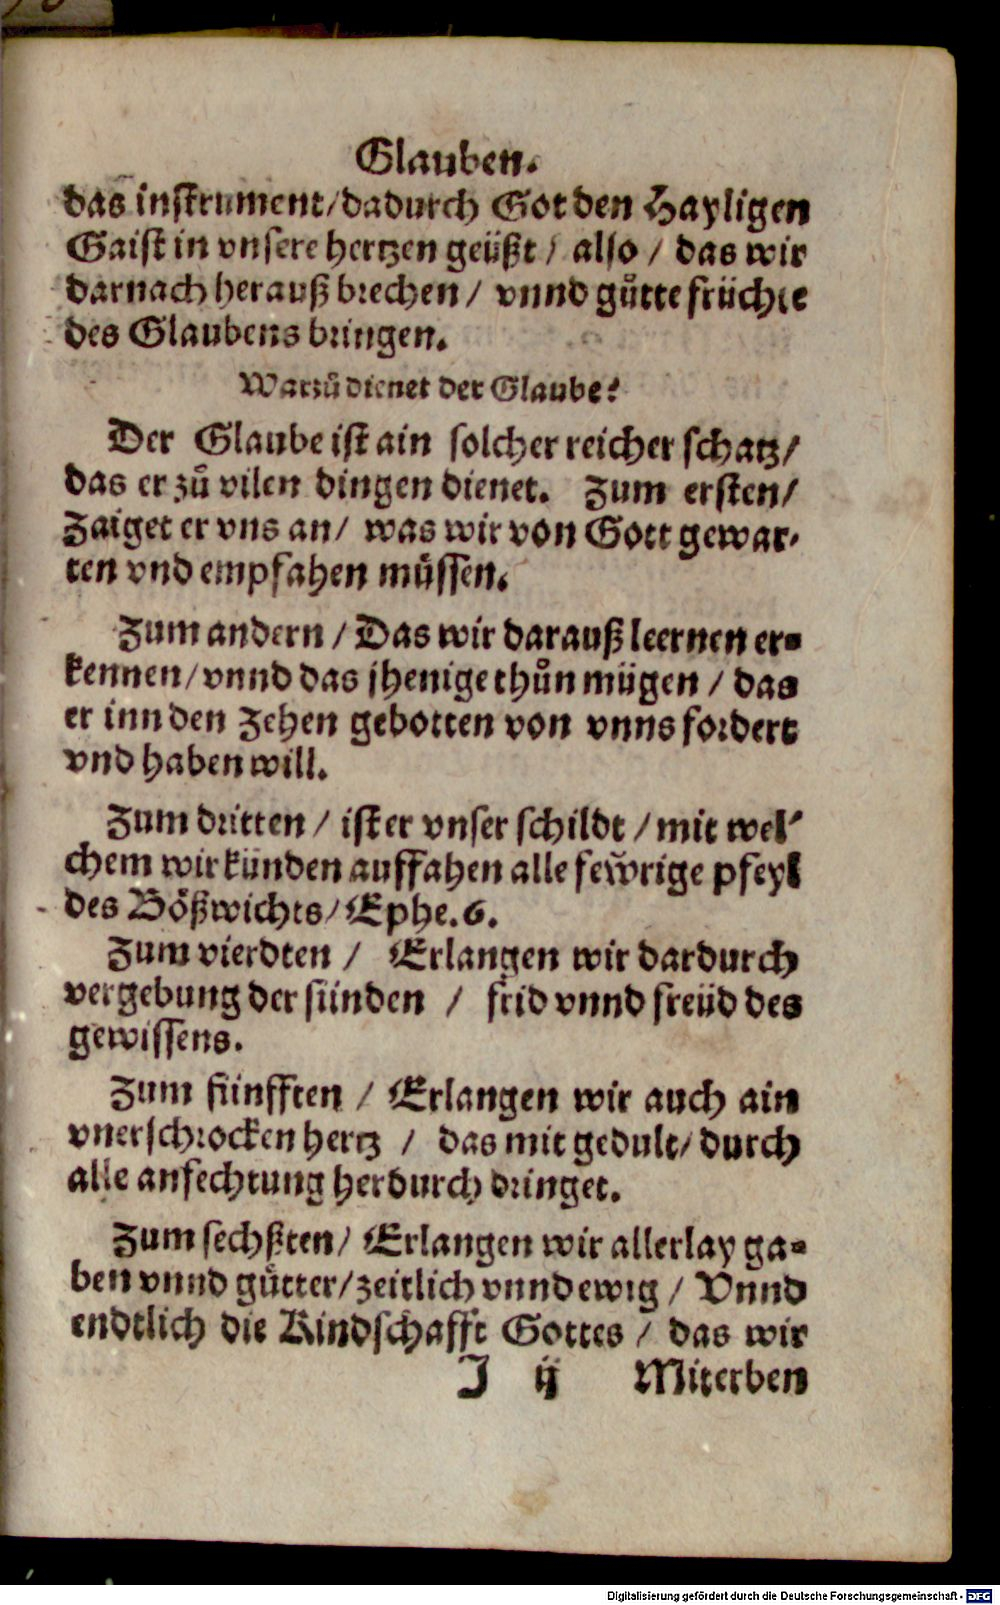 Glauben.
das instrument/dadurch Got den Hayligen
Gaist in vnsere hertzen geüßt / also / das wir
darnach herauß brechen / vnnd gůtte früchte
des Glaubens bringen.
Warzů dienet der Glaube?
Der Glaube ist ain solcher reicher schatz/
das er zů vilen dingen dienet. Zum ersten/
Zaiget er vns an/ was wir von Gott gewar-
ten vnd empfahen müssen.
Zum andern / Das wir darauß leernen er-
kennen/vnnd das jhenige thůn mügen / das
er inn den Zehen gebotten von vnns fordert
vnd haben will.
Zum dritten / ist er vnser schildt / mit wel-
chem wir künden auffahen alle fewrige pfeyl
des Bößwichts/ Ephe.6.
Zum vierdten / Erlangen wir dardurch
vergebung der sünden / frid vnnd freüd des
gewissens.
Zum fünfften / Erlangen wir auch ain
vnerschrocken hertz / das mit gedult/durch
alle anfechtung herdurch dringet.
Zum sechßten/ Erlangen wir allerlay ga-
ben vnnd gůtter/zeitlich vnnd ewig / Vnnd
endtlich die Kindschafft Gottes / das wir
J ij Miterben
Digitalisierung gefördert durch die Deutsche Forschungsgemeinschaft - DFG